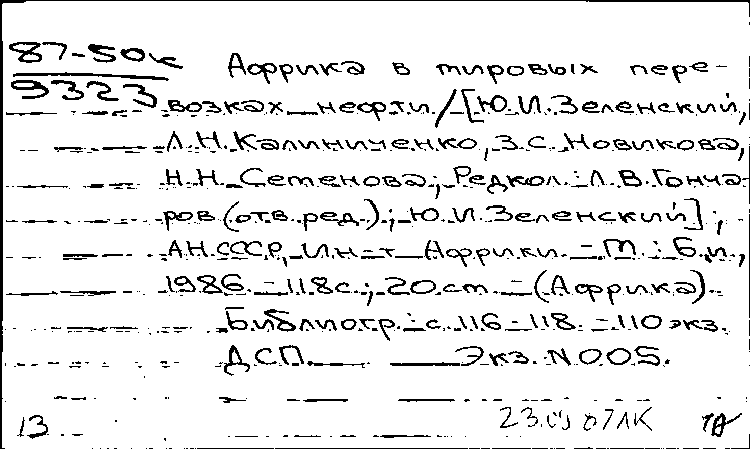 87-50к
9323
Африка в мировых пере-
возках нефти / [Ю.И. Зеленский,
Л.Н. Калиниченко, З.С. Новикова,
Н.Н. Семенова; Редкол.: Л.В. Гонча-
ров (отв. ред.); Ю.И. Зеленский];
АН СССР, Ин-т Африки. - М.: Б.и.,
1986. - 118 с.; 20 см. - (Африка).
Библиогр.: с. 116-118. - 110 экз.
ДСП. Экз. N 005.
13